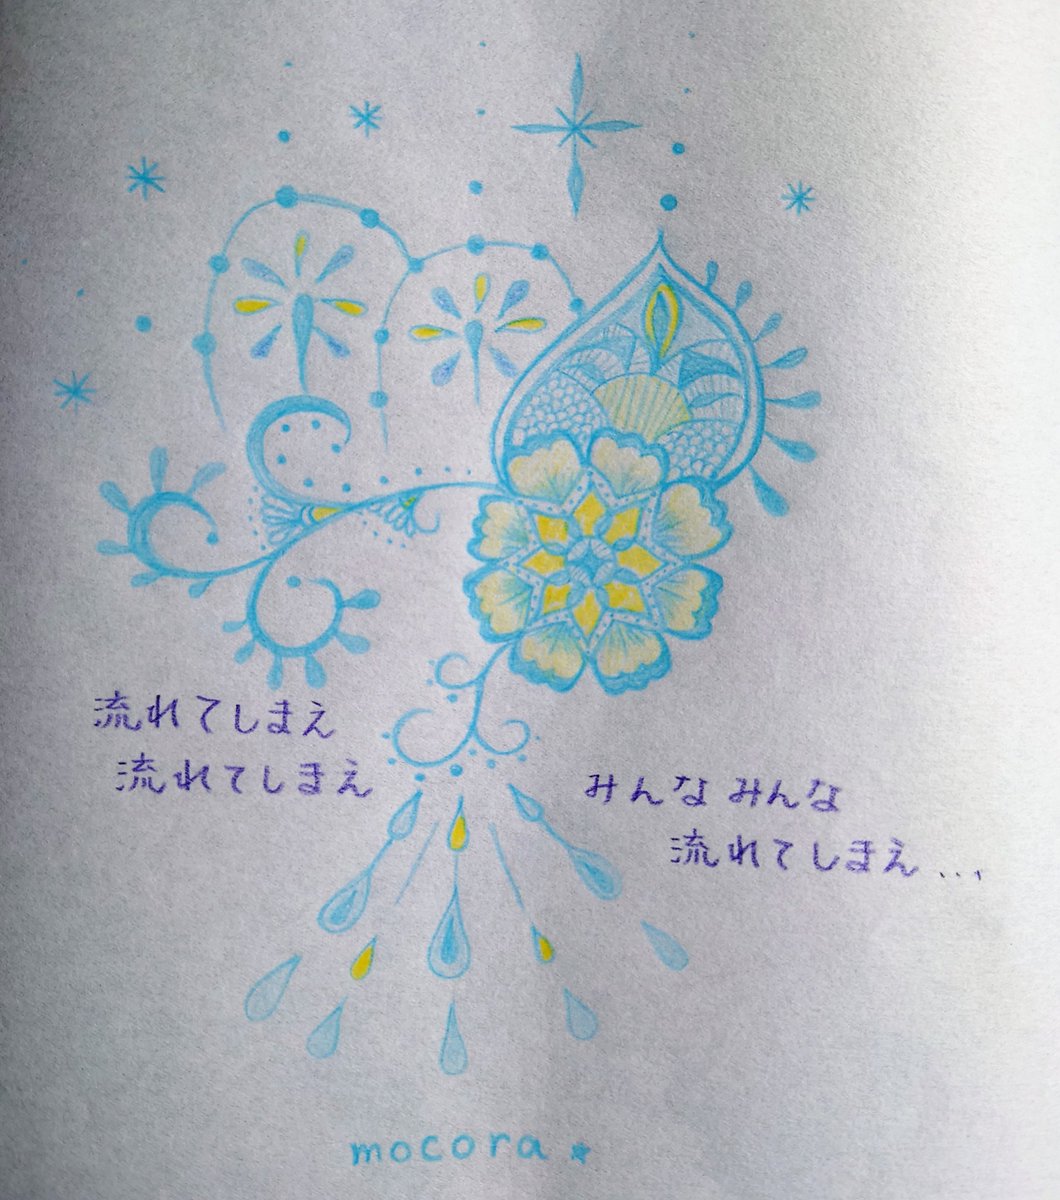 流れてしまえ
流れてしまえ
みんな みんな
流れてしまえ...
mocora★